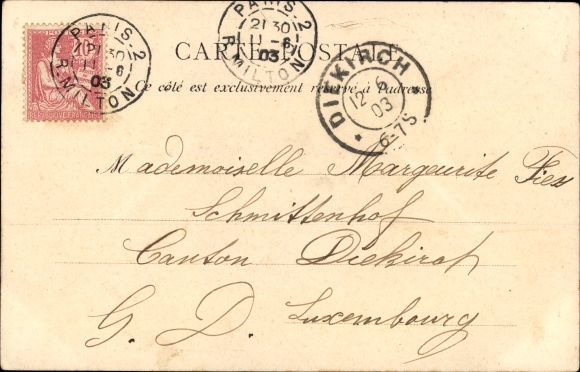 PARIS-2
21 30
11 -6
03
R. MILTON
PARIS-2
21 30
11 -6
03
R. MILTON
CARTE POSTALE
Ce côté est exclusivement réservé à l'adresse
DIEKIRCH
12 6
03
6-7S
10
Mademoiselle Margeurite Fies
Schmittenhof
Canton Diekirch
G. D. Luxembourg